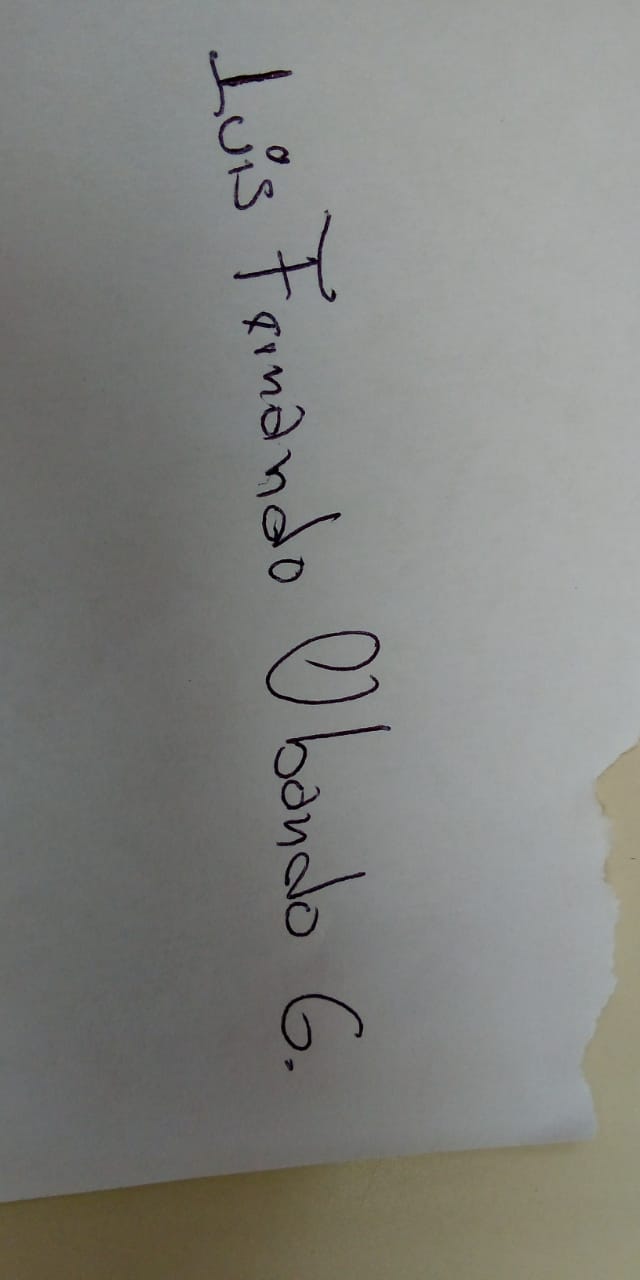 Luis Fernando Obando G.